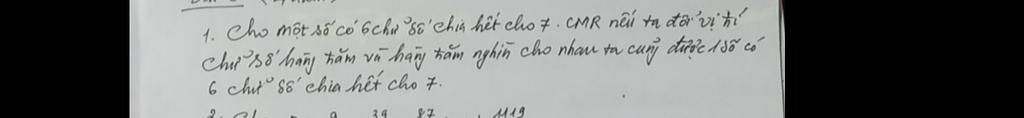 1. Cho một số có 6 chữ số chia hết cho 7. CMR nếu ta đổi vị trí
chữ số hàng trăm và hàng trăm nghìn cho nhau ta cũng được 1 số có
6 chữ số chia hết cho 7.